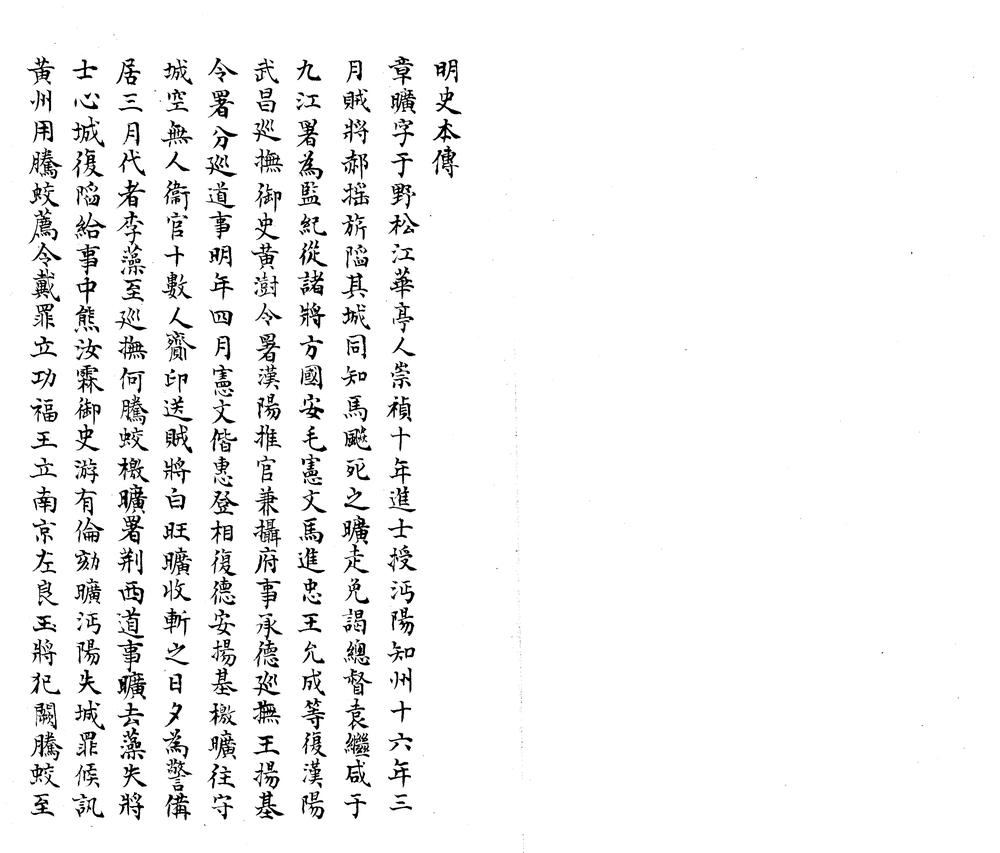 明史本傳
章曠字于野松江華亭人崇禎十年進士授沔陽知州十六年三
月賊將郝搖旂陷其城同知馬飇死之曠走免謁總督袁繼咸于
九江署為監紀從諸將方國安毛憲文馬進忠王允成等復漢陽
武昌巡撫御史黃澍令署漢陽推官兼攝府事承德巡撫王揚基
令署分巡道事明年四月憲文偕惠登相復德安揚基檄曠往守
城空無人衞官十數人齎印送賊將白旺曠收斬之日夕為警備
居三月代者李藻至巡撫何騰蛟檄曠署荆西道事曠去藻失將
士心城復陷給事中熊汝霖御史游有倫劾曠沔陽失城罪候訊
黃州用騰蛟薦令戴罪立功福王立南京左良玉將犯闕騰蛟至